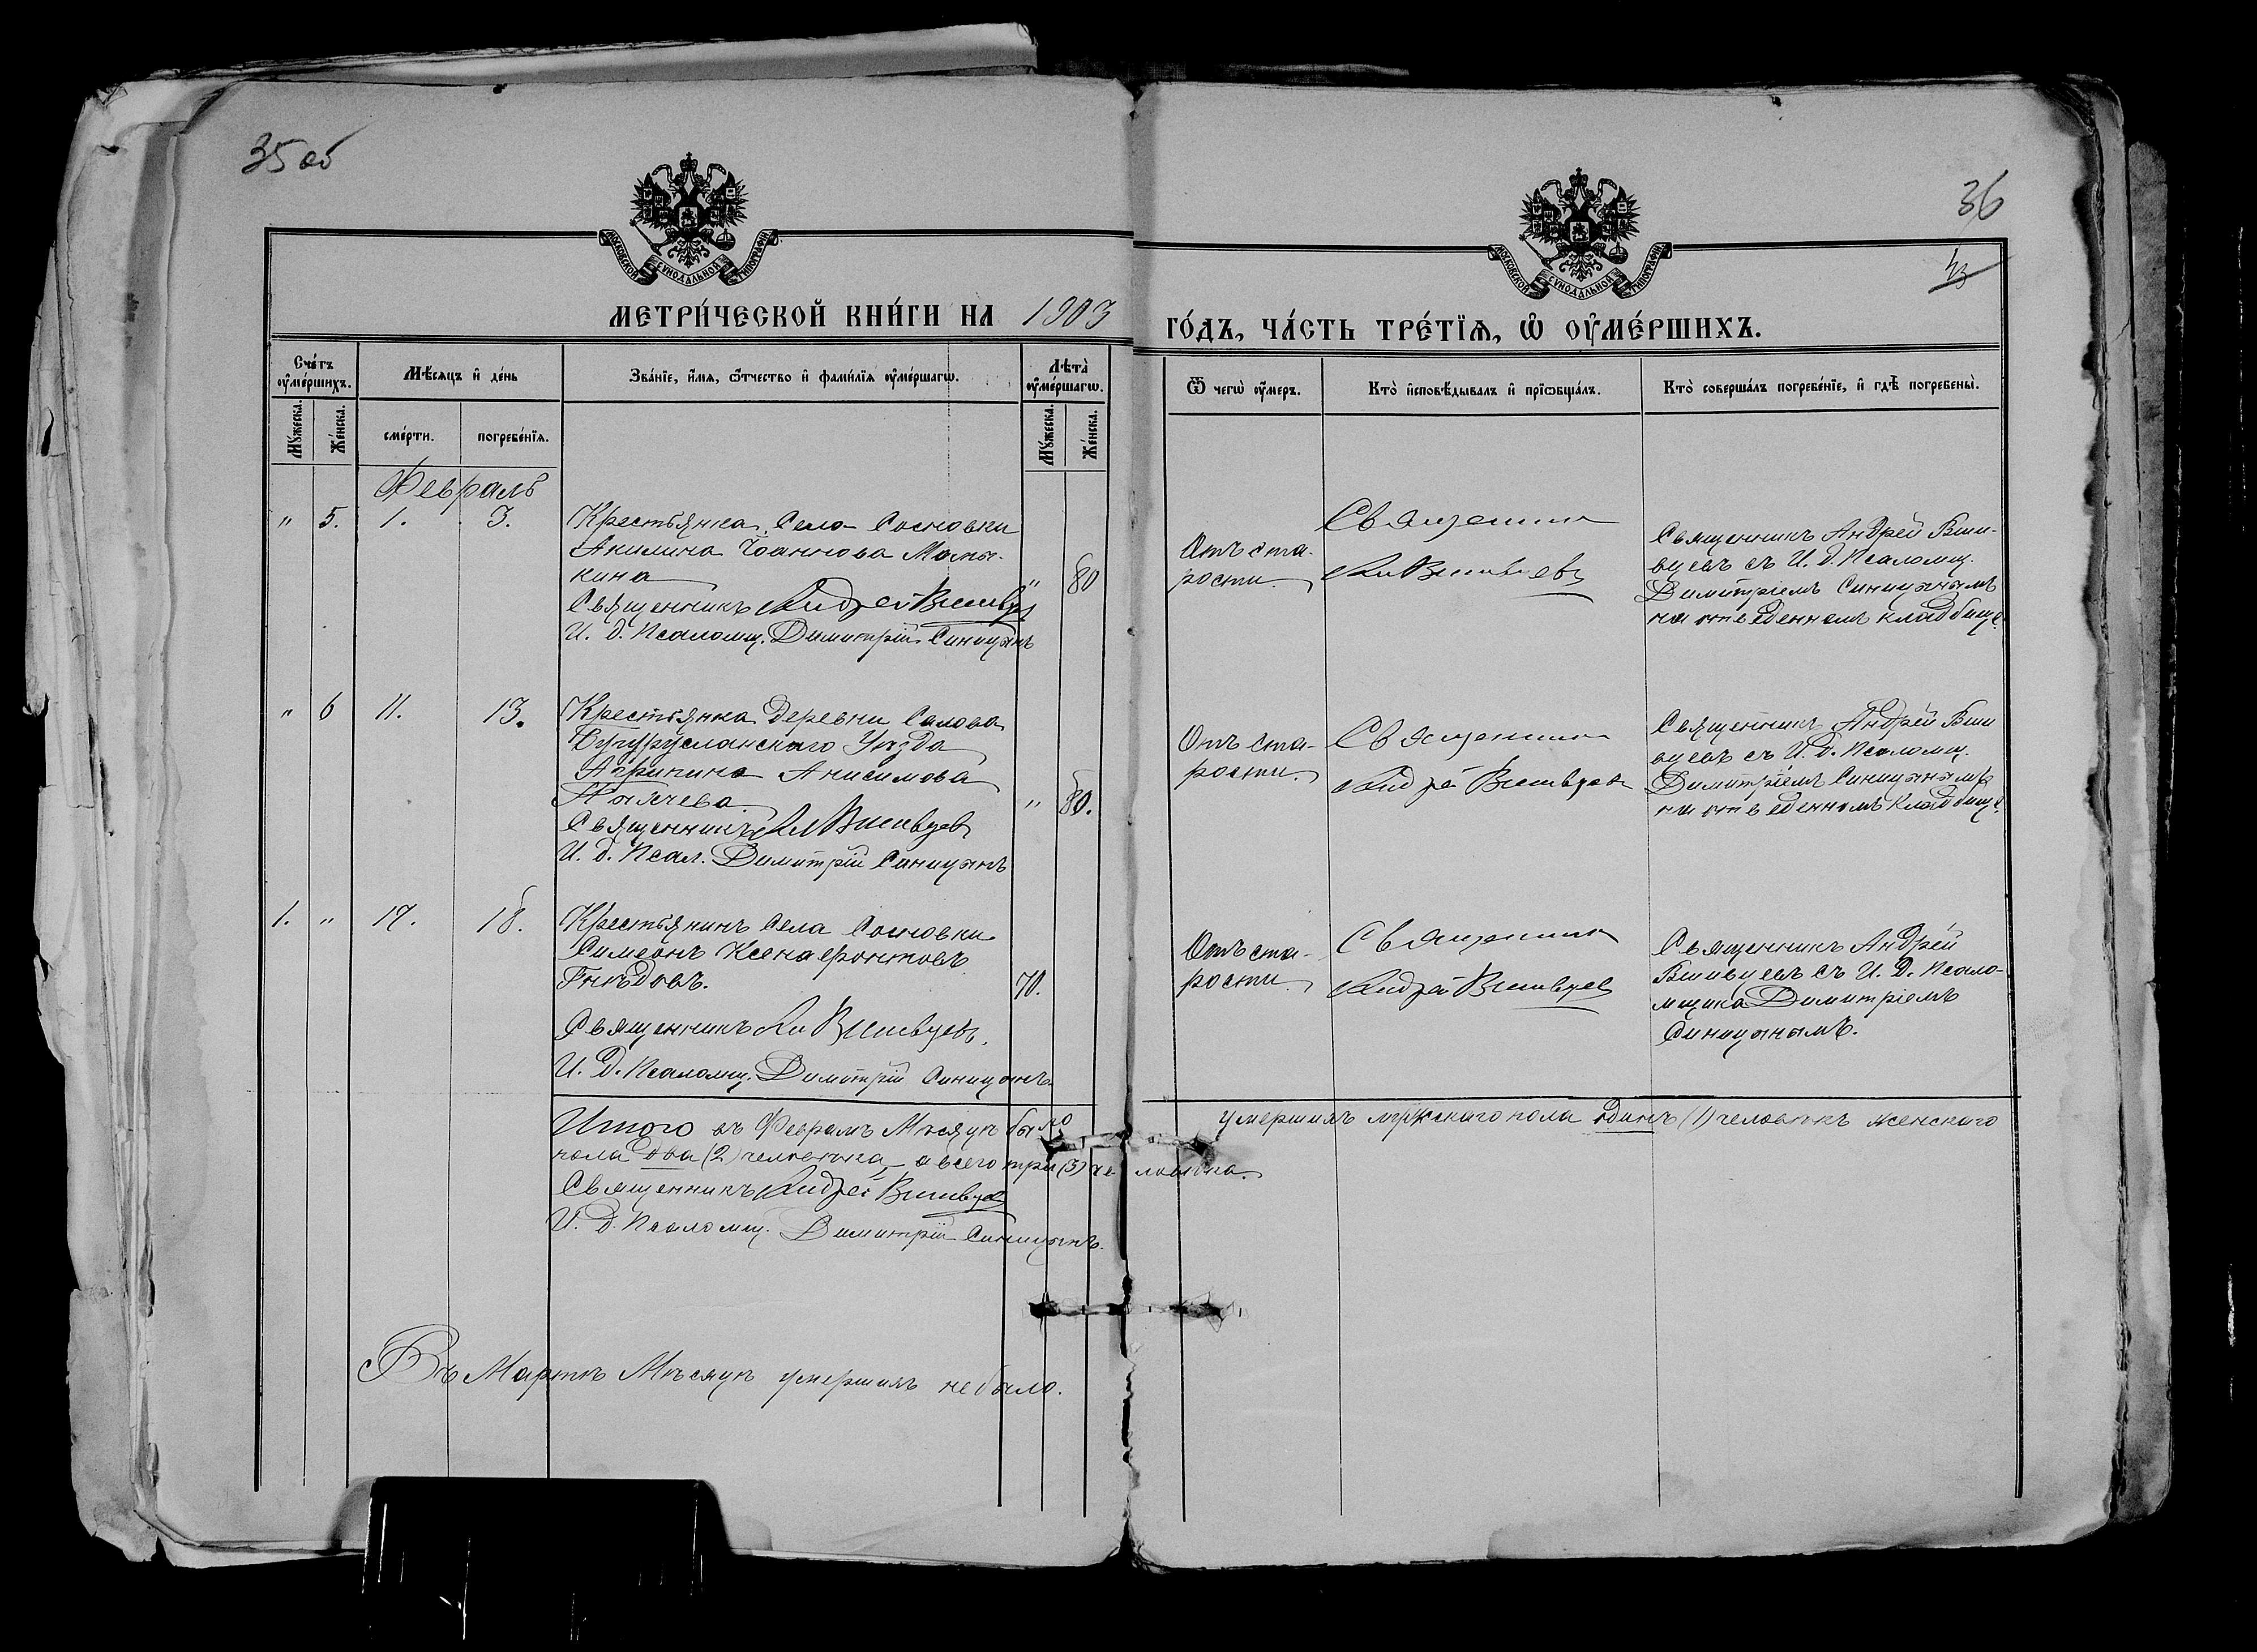 35 об
36
МОСКОВСКОЙ СѴНОДАЛЬНОЙ ТИПОГРАФІИ
МОСКОВСКОЙ СѴНОДАЛЬНОЙ ТИПОГРАФІИ
МЕТРИ́ЧЕСКОЙ КНИ́ГИ НА 1903
ГО́ДЪ, ЧА́СТЬ ТРЕ́ТЇѦ, Ѡ҆ ОУ҆МЕ́РШИХЪ.
Сче́тъ оу҆ме́ршихъ.
Мѣ́сяцъ и҆ де́нь
Зва́нїе, и҆́мѧ, ѻ҆́тчество и҆ фами́лїѧ оу҆ме́ршагѡ.
Лѣ́та оу҆ме́ршагѡ.
Ѿ чегѡ̀ оу҆́меръ.
Кто̀ и҆сповѣ́дывалъ и҆ прїѡбща́лъ.
Кто̀ соверша́лъ погребе́нїе, и҆ гдѣ̀ погребены̀.
Мꙋ́жеска.
Же́нска.
сме́рти.
погребе́нїѧ.
Мꙋ́жеска.
Же́нска.
Февраль
" 5. 1. 3.
Крестьянка Села Сосновки
Акилина Іоаннова Мамы-
кина " 80
Священникъ Андрей Вшивцев
И. д. Псаломщ. Димитрій Синицынъ
Отъ ста-
рости.
Священник
Ан Вшивцевъ
Священникъ Андрей Вши-
вцевъ съ И. д. Псаломщ.
Димитріемъ Синицынымъ
на отведенномъ кладбище.
" 6 11. 13.
Крестьянка Деревни Салова
Бугурусланскаго Уѣзда
Агрипина Анисимова
" 80.
Священникъ Ан Вшивцев
И. д. Псал. Димитрій Синицынъ
Отъ ста-
рости.
Священник
Андрей Вшивцев
Священникъ Андрей Вши
вцевъ съ И. д. Псаломщ.
Димитріемъ Синицынымъ
на отведенномъ кладбище.
1. " 17. 18.
Крестьянинъ Села Сосновки
Симеонъ Ксенафонтовъ
Гнѣдовъ. 70.
Священникъ Ан Вшивцевъ.
И. Д. Псаломщ. Димитрій Синицынъ.
Отъ ста-
рости.
Священник
Андрей Вшивцев
Священникъ Андрей
Вшивцевъ съ И. Д. Псало-
мщика Димитріемъ
Синицынымъ.
Итого въ Февралѣ Мѣсяцѣ было умершихъ мужскаго пола одинъ (1) человѣкъ женскаго
пола два (2) человѣка, а всего три (3) человѣка.
Священникъ Андрей Вшивцев
И. Д. Псаломщ. Димитрій Синицынъ.
Въ Мартѣ Мѣсяцѣ умершихъ не было.